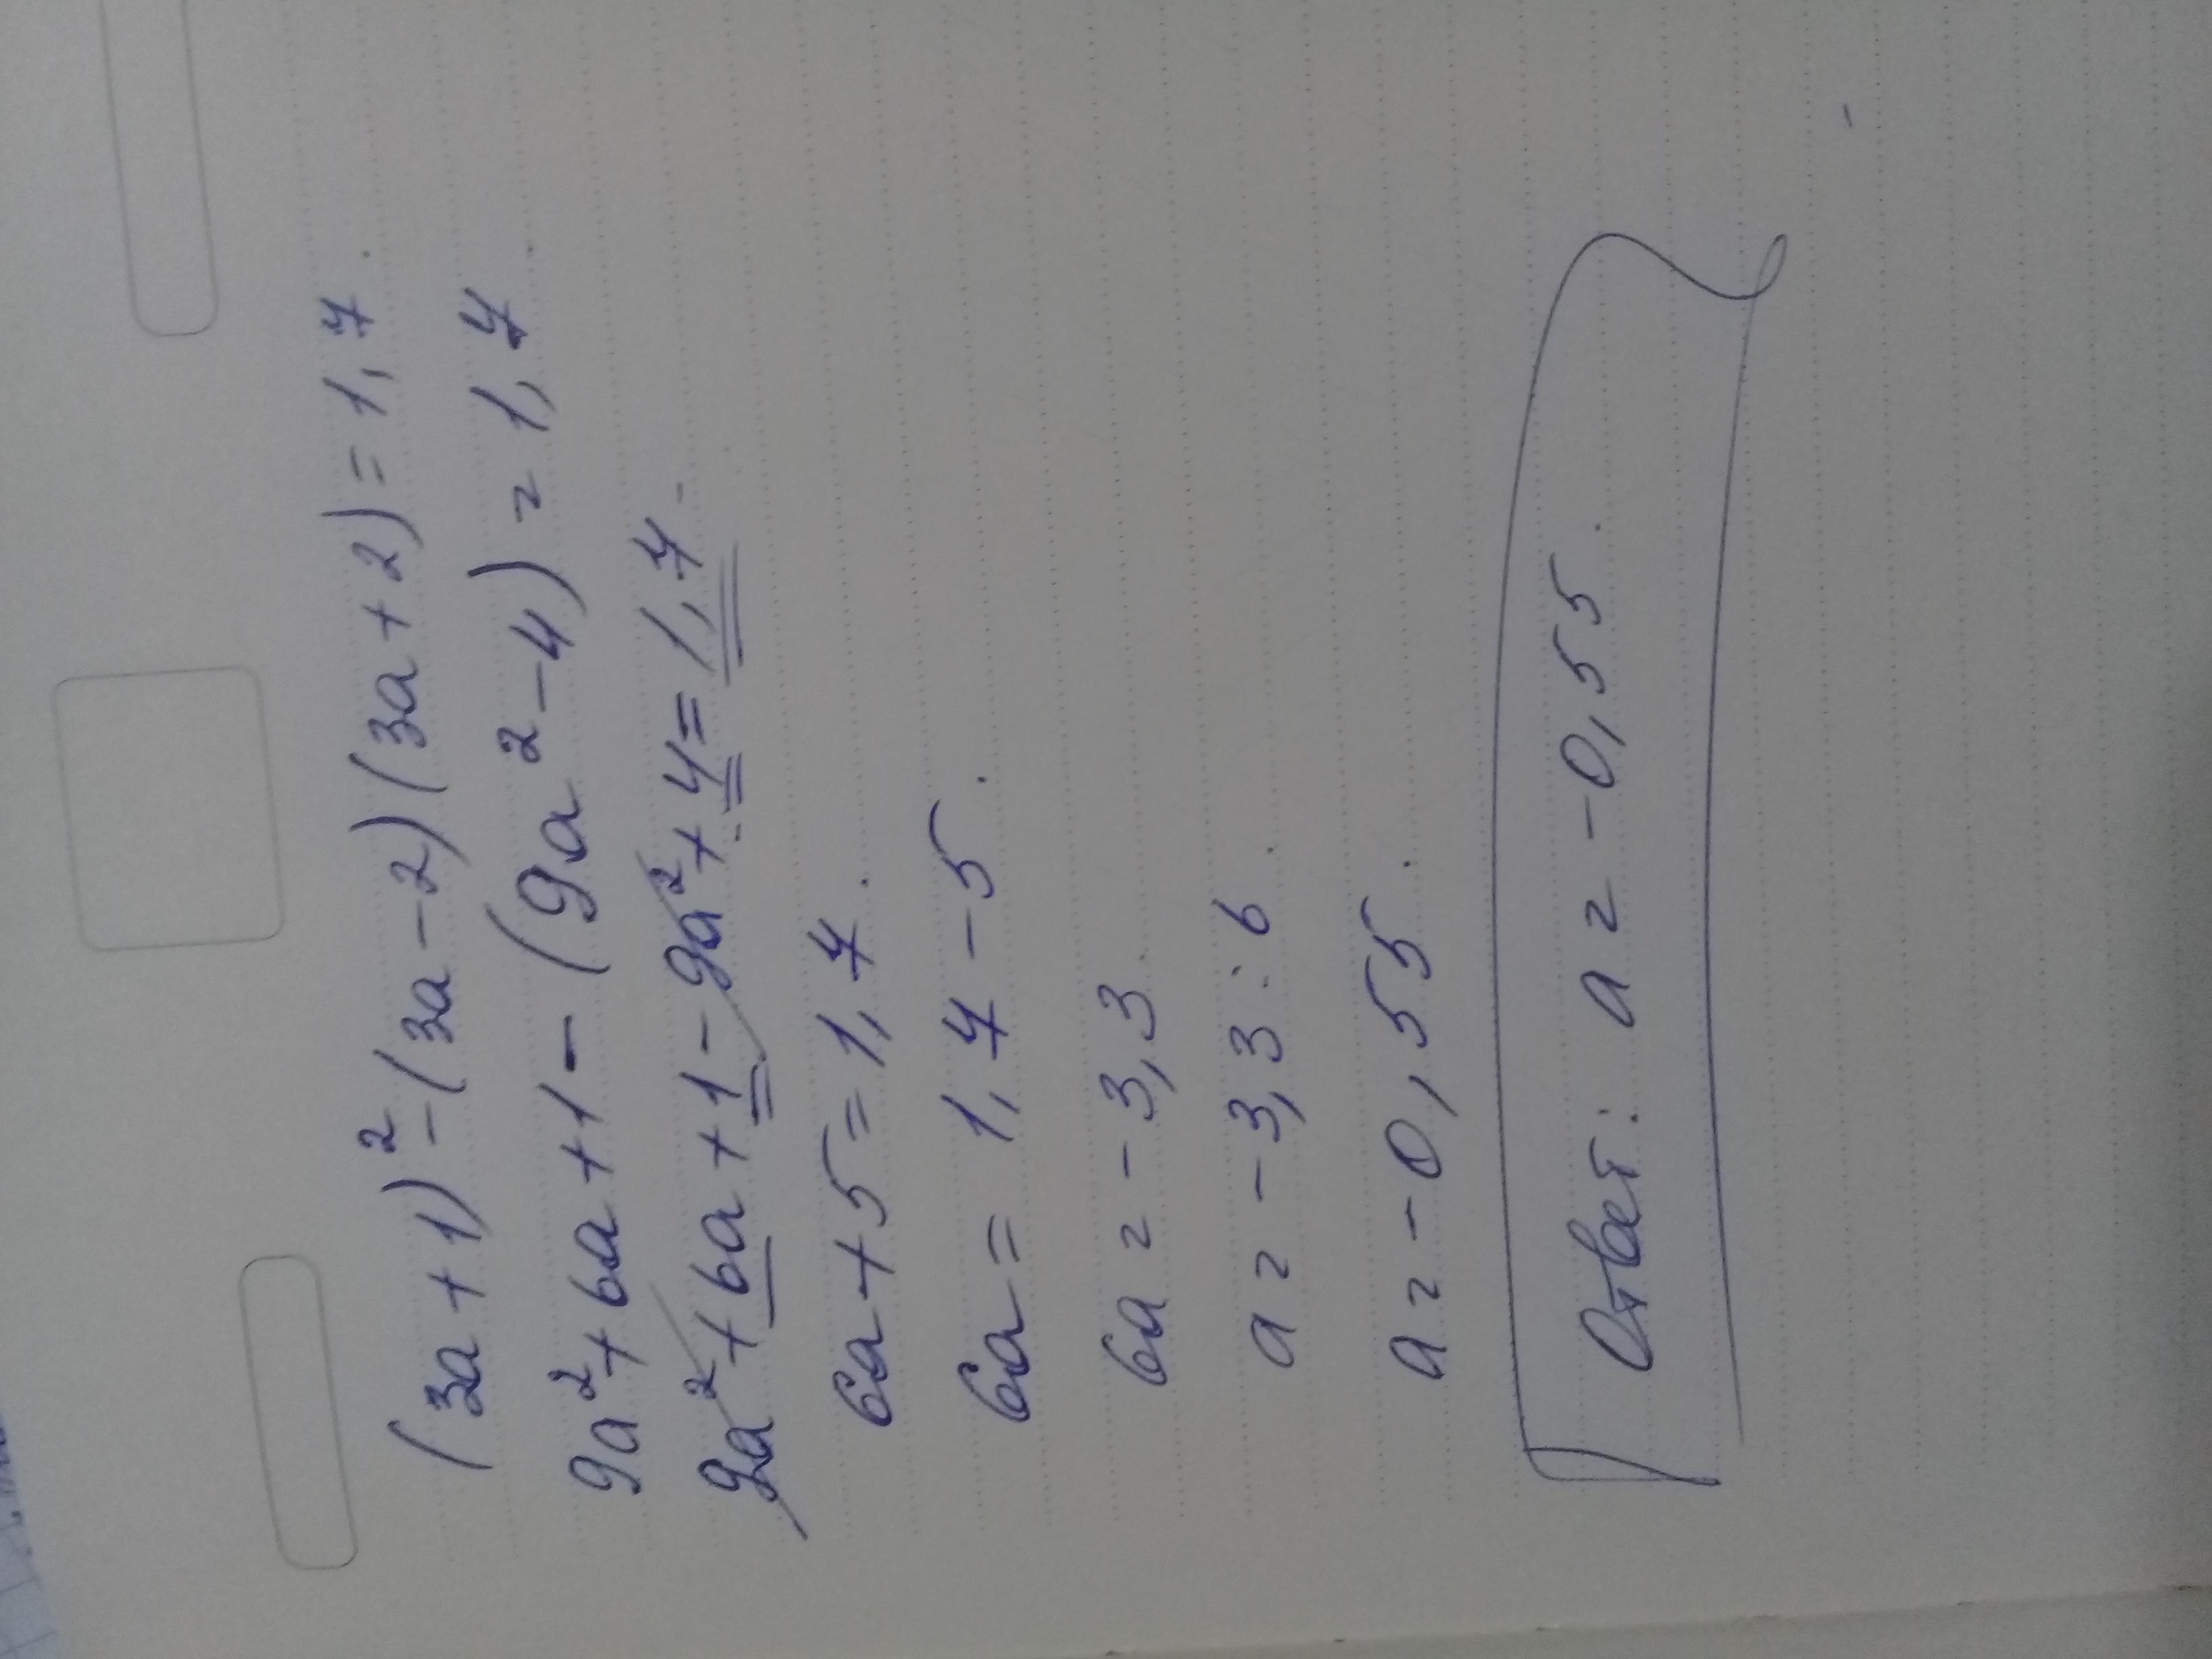 (3a+1)²-(3a-2)(3a+2)=1,7.
9a²+6a+1-(9a²-4)=1,7.
9a²+6a+1-9a²+4=1,7-
6a+5=1,7.
6a=1,7-5.
6a=-3,3.
a=-3,3:6.
a=-0,55.
Ответ: a=-0,55.